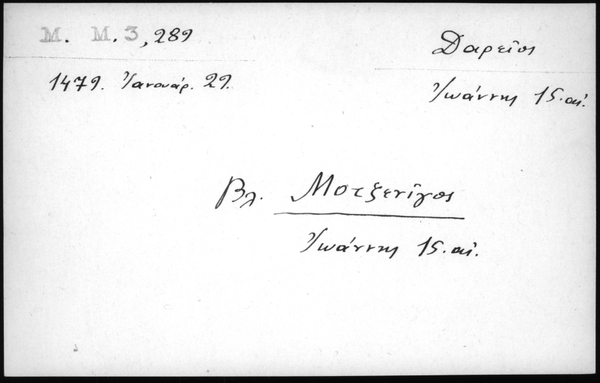 M. M.3,289
Δαρεῖος
1479. Ἰανουάρ. 29.
Ἰωάννης 15. αἰ.
Βλ. Μοτζενῖγος
Ἰωάννης 15. αἰ.